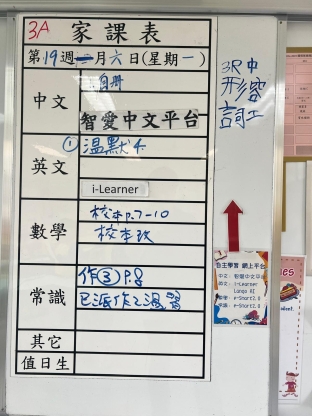 3A 家課表
第19週二月六日(星期一)
中文
自冊
智愛中文平台
英文
①溫默4
i-Learner
數學
校本p.7-10
校本改
常識
作③P.8
已派作2溫習
其它
值日生
3R中
形容
詞工
自主學習 網上平台
中文: 智愛中文平台
英文: i-Learner